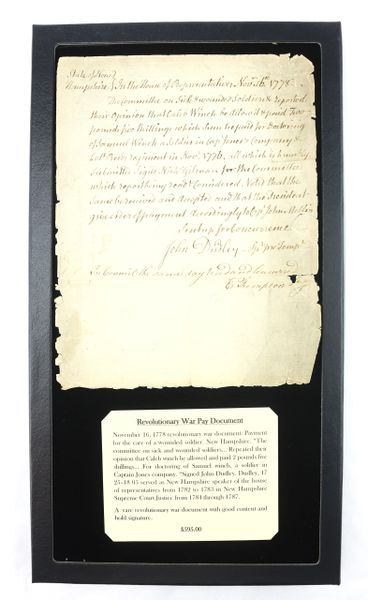 State of New
Hampshire } In the House of Representatives Novr 16th 1778
The Committee on Sick & wounded Soldiers & reported
their Opinion that Caleb Winch be allowd & paid Two
pounds five Shillings which Sum he paid for Doctoring
of Samuel Winch a Soldier in Capt Jones's Company &
Regiment in Novr 1776, all which is humbly
Submitted Signd Gilman for the Committee
which report being read & Considered, Voted that the
Same be received and accepted and that the President
give order of payment accordingly to Capt John
Sent up for Concurrence
John Dudley Spr pr Tempr
In Council the same day read and concurred
E Thompson Secy
Revolutionary War Pay Document
November 16, 1778 revolutionary war document. Payment
for the care of a wounded soldier. New Hampshire. "The
committee on sick and wounded soldiers... Repeated their
opinion that Caleb winch be allowed and paid 2 pounds five
shillings... For doctoring of Samuel winch, a soldier in
Captain Jones company. "Signed John Dudley. Dudley, 17
25-18 05 served as New Hampshire speaker of the house
of representatives from 1782 to 1783 in New Hampshire
Supreme Court Justice from 1784 through 1787.
A rare revolutionary war document with good content and
bold signature.
$595.00